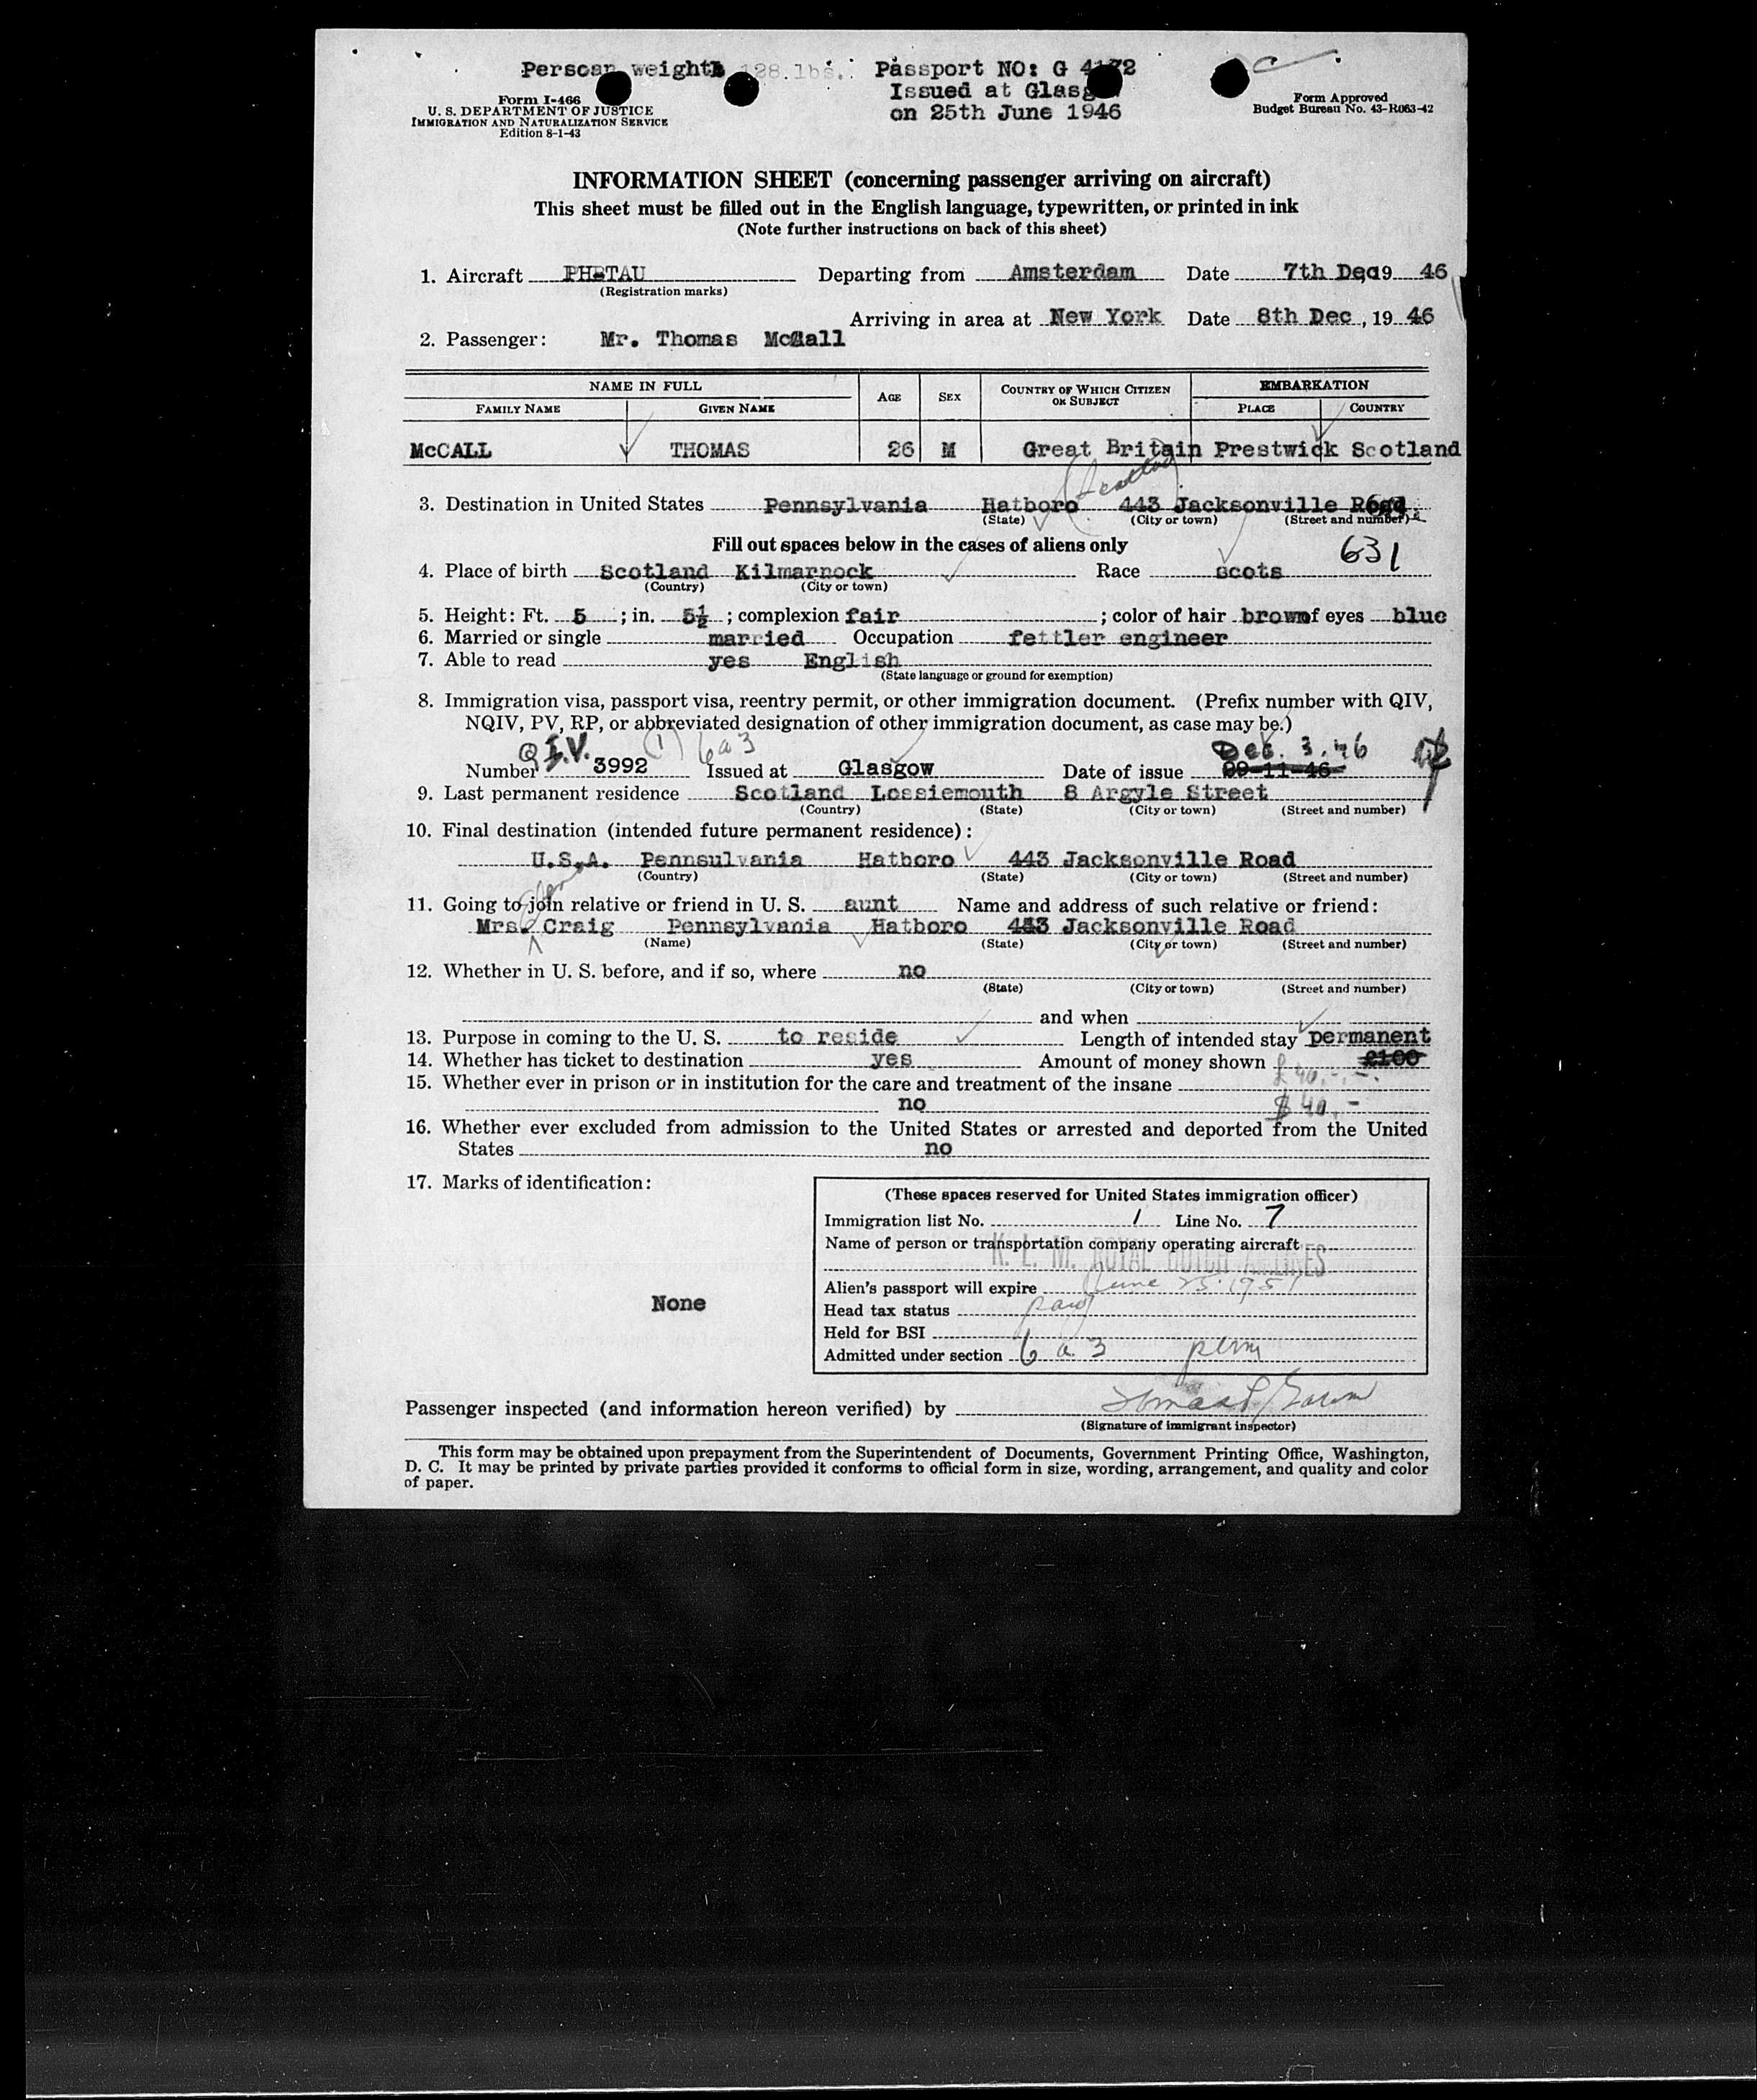 Person weight 128.lbs. Passport NO: G 41 2
Issued at Glasg
on 25th June 1946
Form I-466
U. S. DEPARTMENT OF JUSTICE
IMMIGRATION AND NATURALIZATION SERVICE
Edition 8-1-43
Form Approved
Budget Bureau No. 43-R063-42
INFORMATION SHEET (concerning passenger arriving on aircraft)
This sheet must be filled out in the English language, typewritten, or printed in ink
(Note further instructions on back of this sheet)
1. Aircraft PH-TAU Departing from Amsterdam Date 7th Dec, 19 46
(Registration marks)
Arriving in area at New York Date 8th Dec , 19 46
2. Passenger: Mr. Thomas McCall
NAME IN FULL AGE SEX COUNTRY OF WHICH CITIZEN OR SUBJECT EMBARKATION
FAMILY NAME GIVEN NAME PLACE COUNTRY
McCALL THOMAS 26 M Great Britain Prestwick Scotland
3. Destination in United States Pennsylvania Hatboro 443 Jacksonville Road
(State) (City or town) (Street and number)
Fill out spaces below in the cases of aliens only
631
4. Place of birth Scotland Kilmarnock Race scots
(Country) (City or town)
5. Height: Ft. 5 ; in. 5½ ; complexion fair ; color of hair brown of eyes blue
6. Married or single married Occupation fettler engineer
7. Able to read yes English
(State language or ground for exemption)
8. Immigration visa, passport visa, reentry permit, or other immigration document. (Prefix number with QIV,
NQIV, PV, RP, or abbreviated designation of other immigration document, as case may be.)
Q I.V. (1) 6 a 3 Dec. 3. 46
Number 3992 Issued at Glasgow Date of issue 29-11-46
9. Last permanent residence Scotland Lossiemouth 8 Argyle Street
(Country) (State) (City or town) (Street and number)
10. Final destination (intended future permanent residence):
U.S.A. Pennsulvania Hatboro 443 Jacksonville Road
(Country) (State) (City or town) (Street and number)
11. Going to join relative or friend in U. S. aunt Name and address of such relative or friend:
Mrs. Craig Pennsylvania Hatboro 443 Jacksonville Road
(Name) (State) (City or town) (Street and number)
12. Whether in U. S. before, and if so, where no
(State) (City or town) (Street and number)
and when
13. Purpose in coming to the U. S. to reside Length of intended stay permanent
14. Whether has ticket to destination yes Amount of money shown £100
£ 40.-.-.
15. Whether ever in prison or in institution for the care and treatment of the insane
no $ 40.-
16. Whether ever excluded from admission to the United States or arrested and deported from the United
States no
17. Marks of identification:
None
(These spaces reserved for United States immigration officer)
Immigration list No. 1 Line No. 7
Name of person or transportation company operating aircraft
K. L. M. ROYAL DUTCH AIRLINES
Alien's passport will expire June 25. 1951
Head tax status paid
Held for BSI
Admitted under section 6 a 3 perm
Passenger inspected (and information hereon verified) by
(Signature of immigrant inspector)
This form may be obtained upon prepayment from the Superintendent of Documents, Government Printing Office, Washington,
D. C. It may be printed by private parties provided it conforms to official form in size, wording, arrangement, and quality and color
of paper.